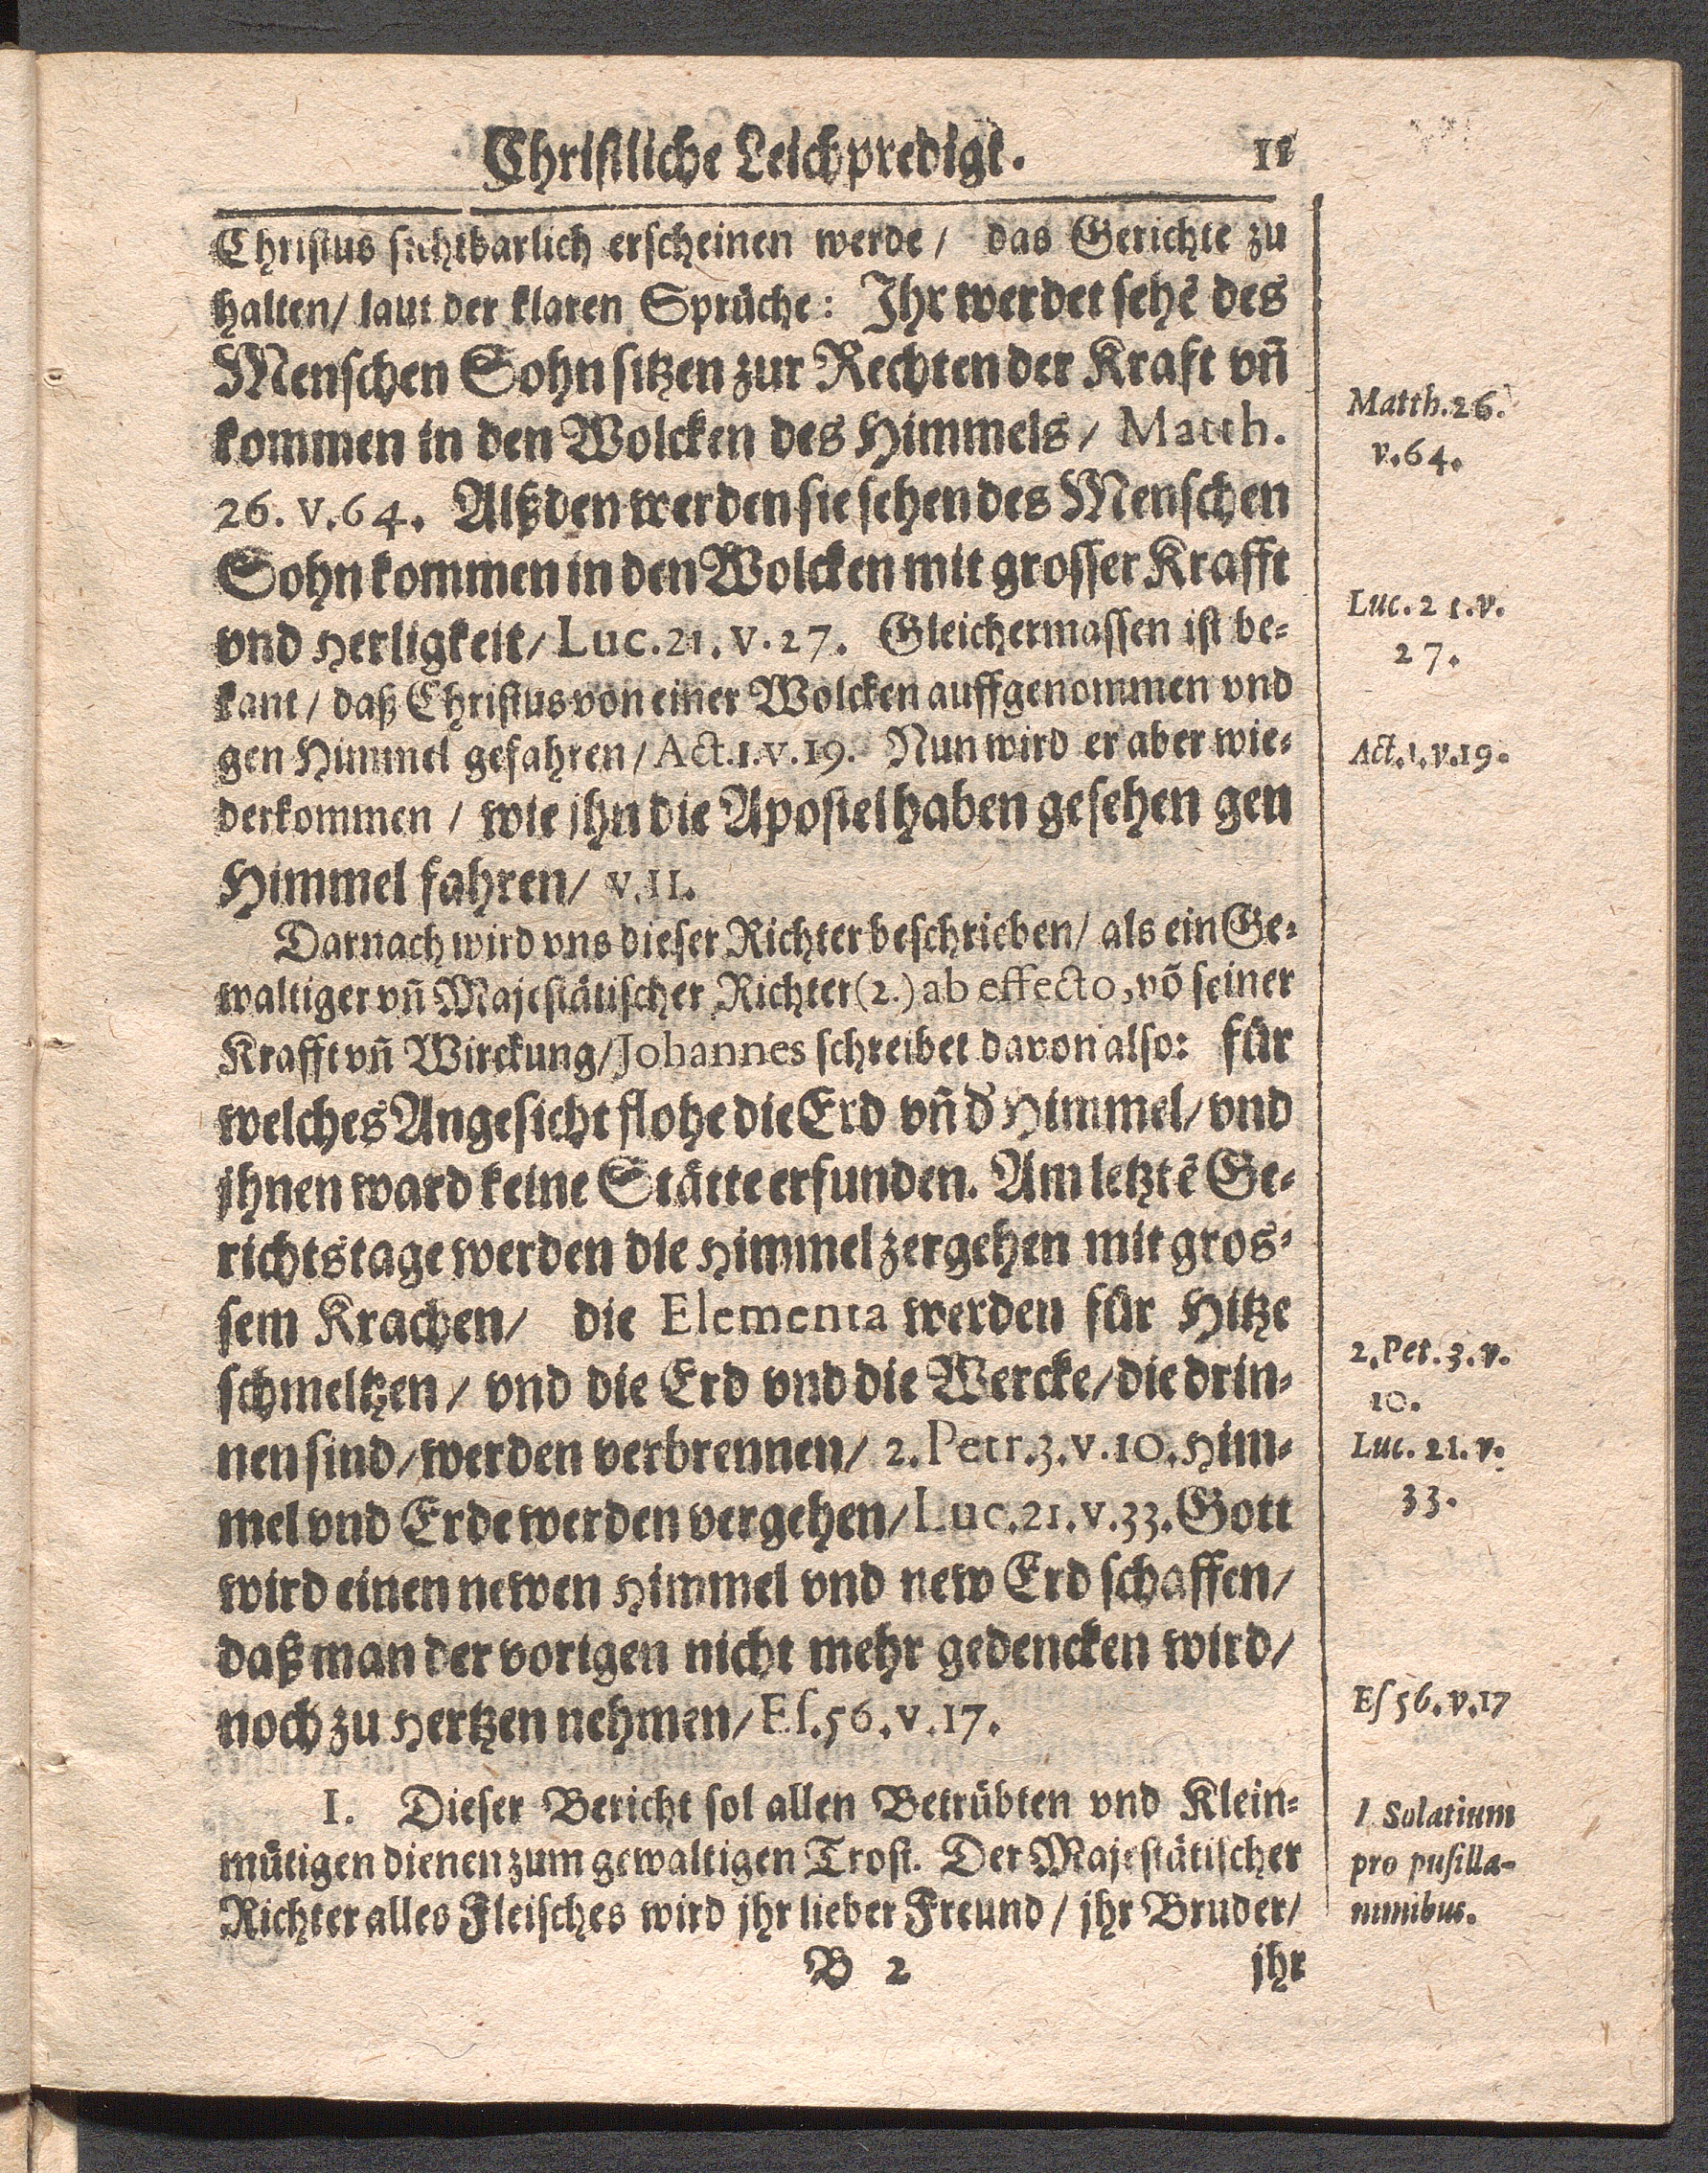 Christliche Leichpredigt. 11
Christus sichtbarlich erscheinen werde / das Gerichte zu
halten / laut der klaren Sprüche: Jhr werdet sehẽ des
Menschen Sohn sitzen zur Rechten der Kraft vñ
kommen in den Wolcken des Himmels / Matth.
26. v. 64. Alßden werden sie sehen des Menschen
Sohn kommen in den Wolcken mit grosser Krafft
vnd Herligkeit / Luc. 21. v. 27. Gleichermassen ist be-
kant / daß Christus von einer Wolcken auffgenommen vnd
gen Himmel gefahren / Act. 1. v. 19. Nun wird er aber wie-
derkommen / wie jhn die Apostel haben gesehen gen
Himmel fahren / v. 11.
Darnach wird vns dieser Richter beschrieben / als ein Ge-
waltiger vñ Majestätischer Richter (2.) ab effecto, võ seiner
Krafft vñ Wirckung / Johannes schreibet davon also: für
welches Angesicht flohe die Erd vñ d' Himmel / vnd
jhnen ward keine Stätte erfunden. Am letztẽ Ge-
richtstage werden die Himmel zergehen mit gros-
sem Krachen / die Elementa werden für Hitze
schmeltzen / vnd die Erd vnd die Wercke / die drin-
nen sind / werden verbrennen / 2. Petr. 3. v. 10. Him-
mel vnd Erde werden vergehen / Luc. 21. v. 33. Gott
wird einen newen Himmel vnd new Erd schaffen /
daß man der vorigen nicht mehr gedencken wird /
noch zu Hertzen nehmen / Es. 56. v. 17.
I. Dieser Bericht sol allen Betrübten vnd Klein-
mütigen dienen zum gewaltigen Trost. Der Majestätischer
Richter alles Fleisches wird jhr lieber Freund / jhr Bruder /
B 2 jhr
Matth. 26.
v. 64.
Luc. 21. v.
27.
Act. 1. v. 19.
2. Pet. 3. v.
10.
Luc. 21. v.
33.
Es 56. v. 17
I Solatium
pro pusilla-
nimibus.